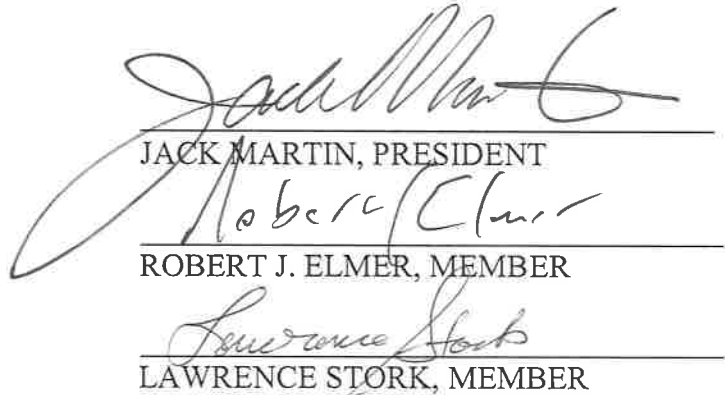 Jack Martin
JACK MARTIN, PRESIDENT
Robert J Elmer
ROBERT J. ELMER, MEMBER
Lawrence Stork
LAWRENCE STORK, MEMBER